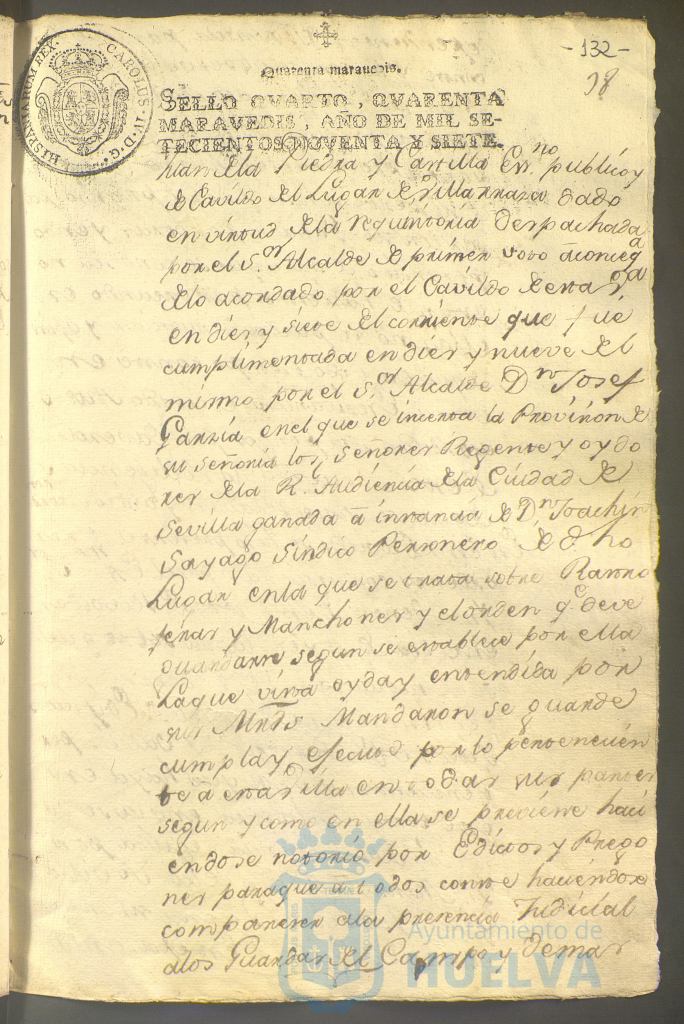 -132-
98
CAROLUS · IV · D · G · HISPANIARUM REX ·
Quarenta maravedis.
SELLO QVARTO, QVARENTA
MARAVEDIS, AÑO DE MIL SE-
TECIENTOS NOVENTA Y SIETE.
de la Piedra y Castilla Essno publico y
de Cavildo del Lugar de Villarraza dado
en virtud de la requisitoria despachada
por el Sor Alcalde de primer voto a conseqa
de lo acordado por el Cavildo de esta
en diez y siete del corriente que fué
cumplimentada en diez y nueve del
mismo por el Sor Alcalde Dn Josef
Garzia en el que se incerta la Provision de
su señoria los Señores Regente y oydo
res de la R. Audiencia de la Ciudad de
Sevilla ganada a instancia de Dn Joachin
Sayago Sindico Personero de dho
Lugar en la que se trata sobre Rastro
jeras y Manchones y el orden qe deve
guardarse segun se establece por ella
La que vista oyda y entendida por
sus Mrds Mandaron se guarde
cumpla y efectue por lo pertenecien
te a esta villa en todas sus partes
segun y como en ella se previene haci
endose notorio por Edictos y Prego
nes para que a todos conste haciendose
comparecer a la presencia Judicial
a los Guardas del Campo y demas
Ayuntamiento de
HUELVA